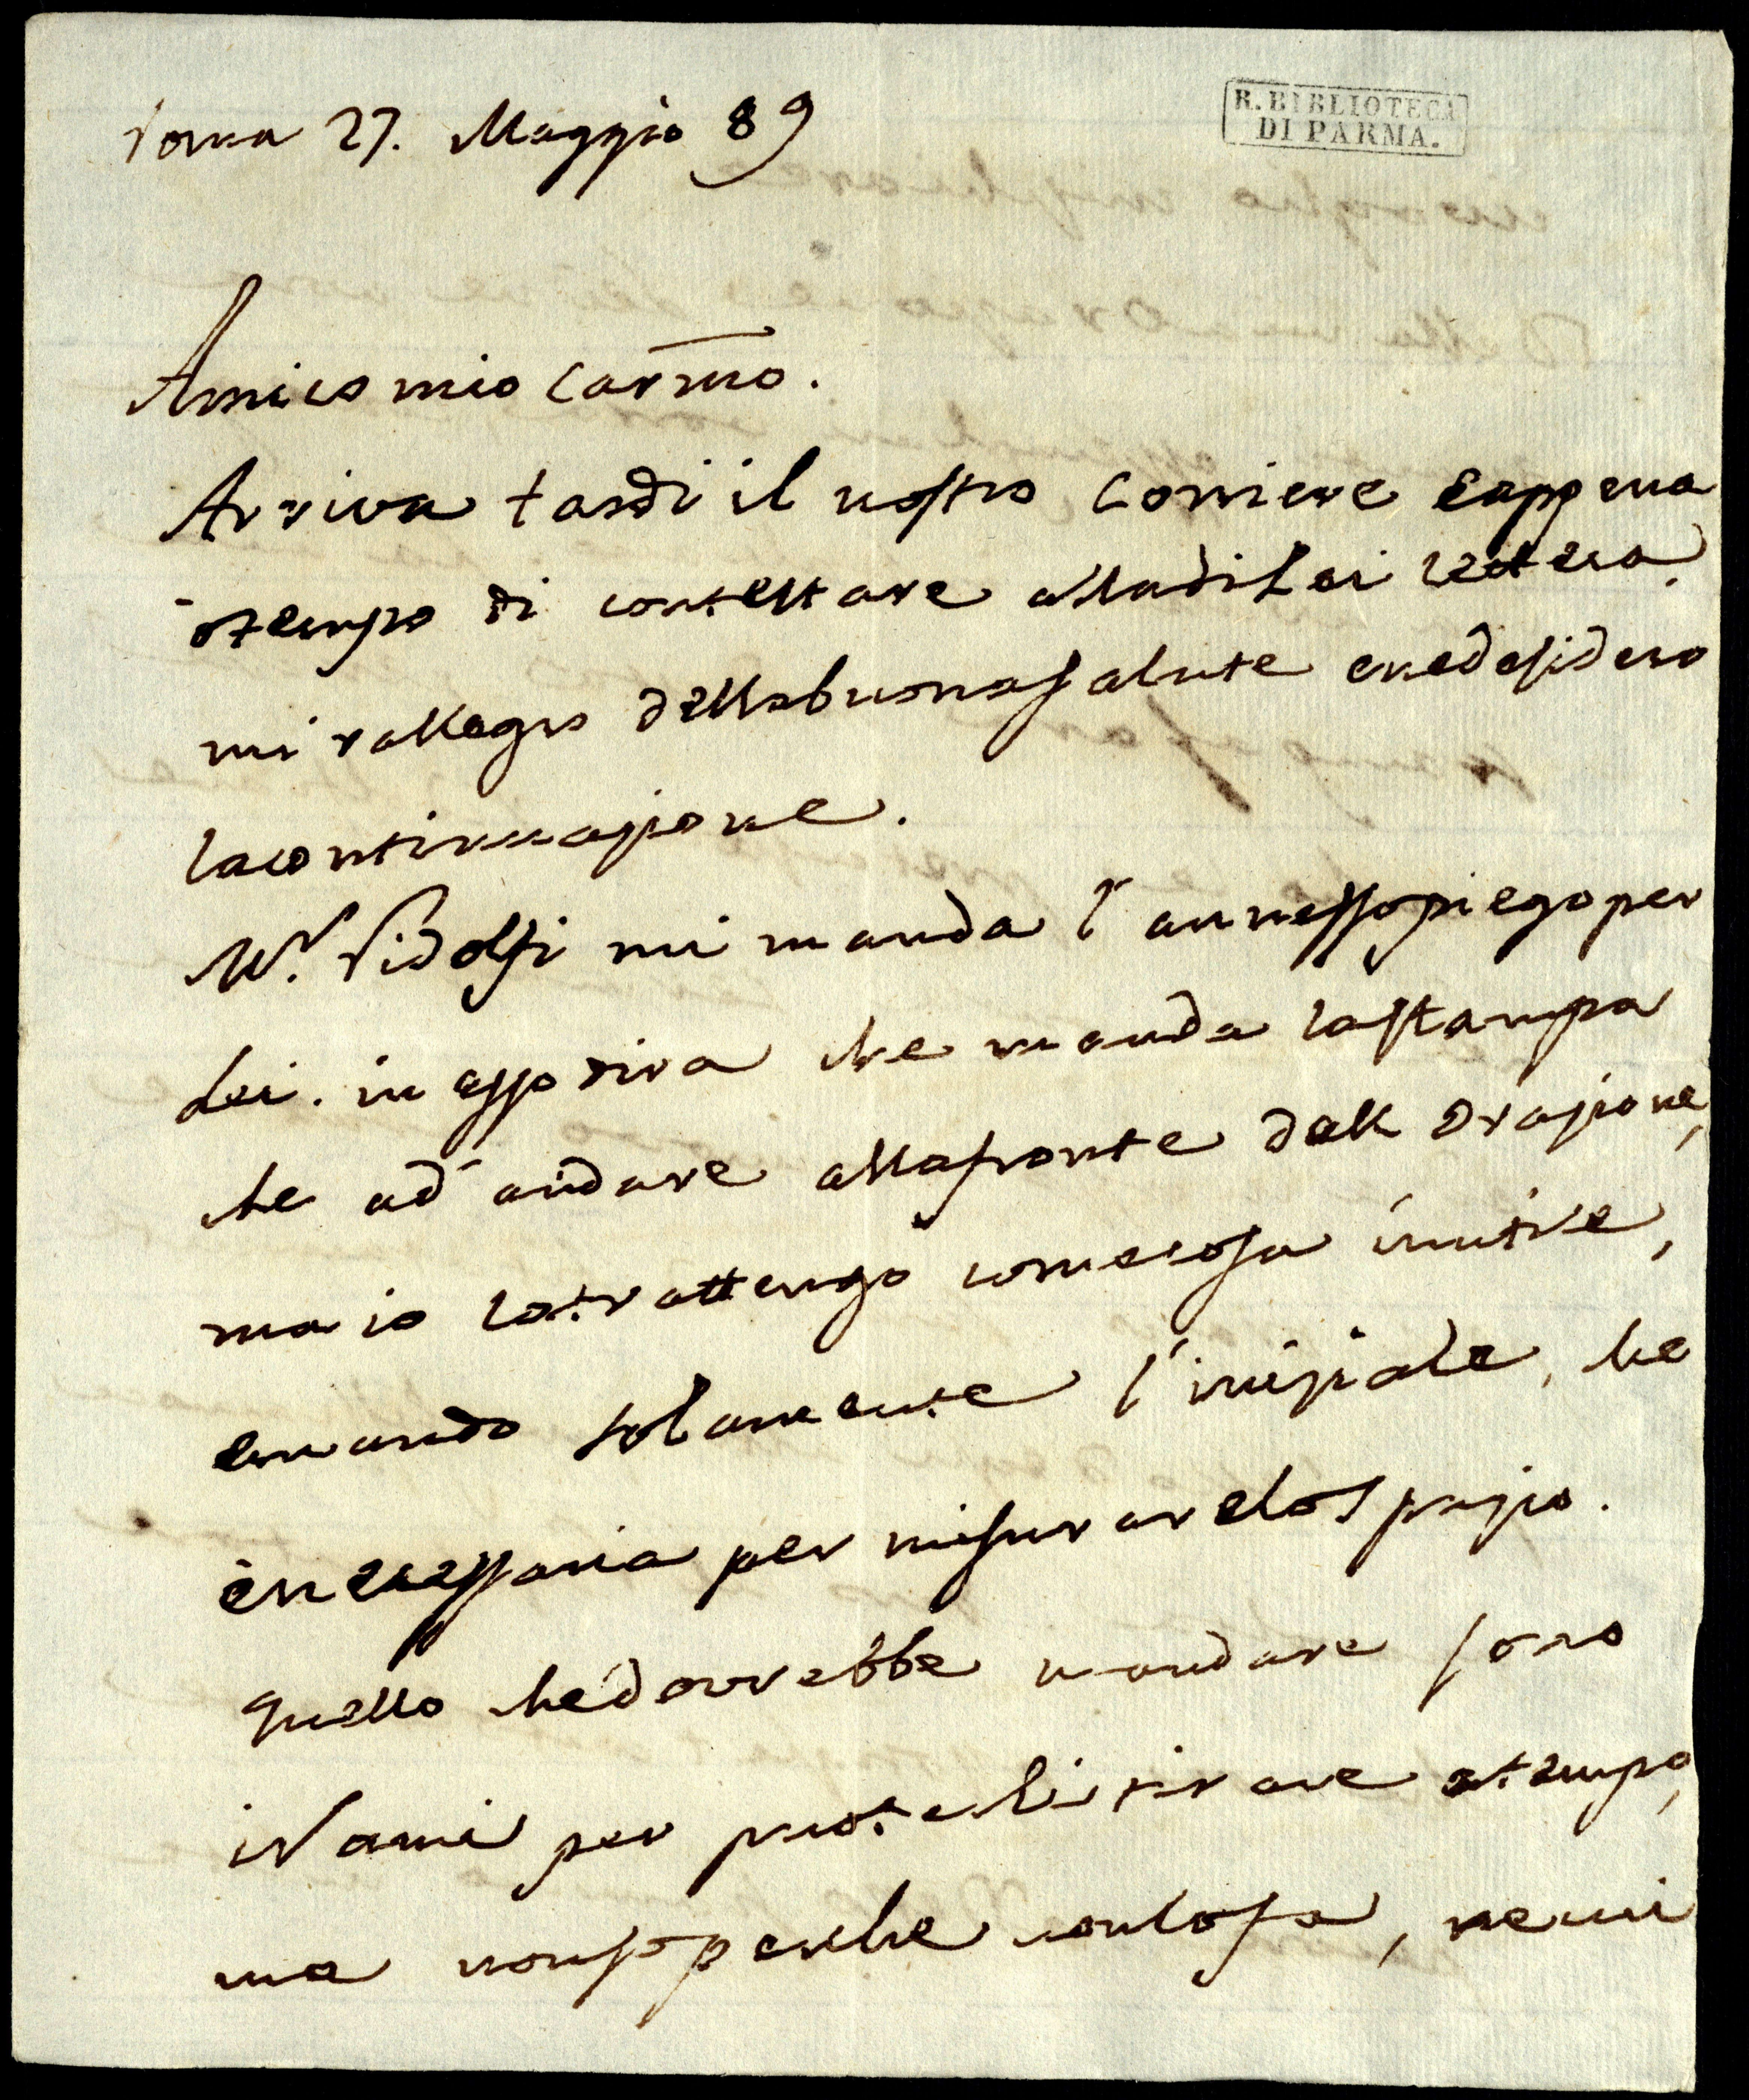 roma 27. Maggio 89
R. BIBLIOTECA
DI PARMA.
Amico mio Carmo.
Arriva tardi il nostro Corriere eappena
ò tempo di contestare alladilei lettera.
mi rallegro dellabuonasalute enedesidero
lacontinuazione.
Mr. Ridolfi mi manda l'annessopiegoper
Lei. in esso dirà che manda lastampa
che ad' andare allafronte dell Orazione,
ma io lotrattengo comecosa inutile,
emando solamente l'iniziale, che
ènecessaria per misurarelospazio.
quello chedovrebbe mandare sono
iRami per poterlitirare atempo,
ma nonsoperche nonlofa, nemi